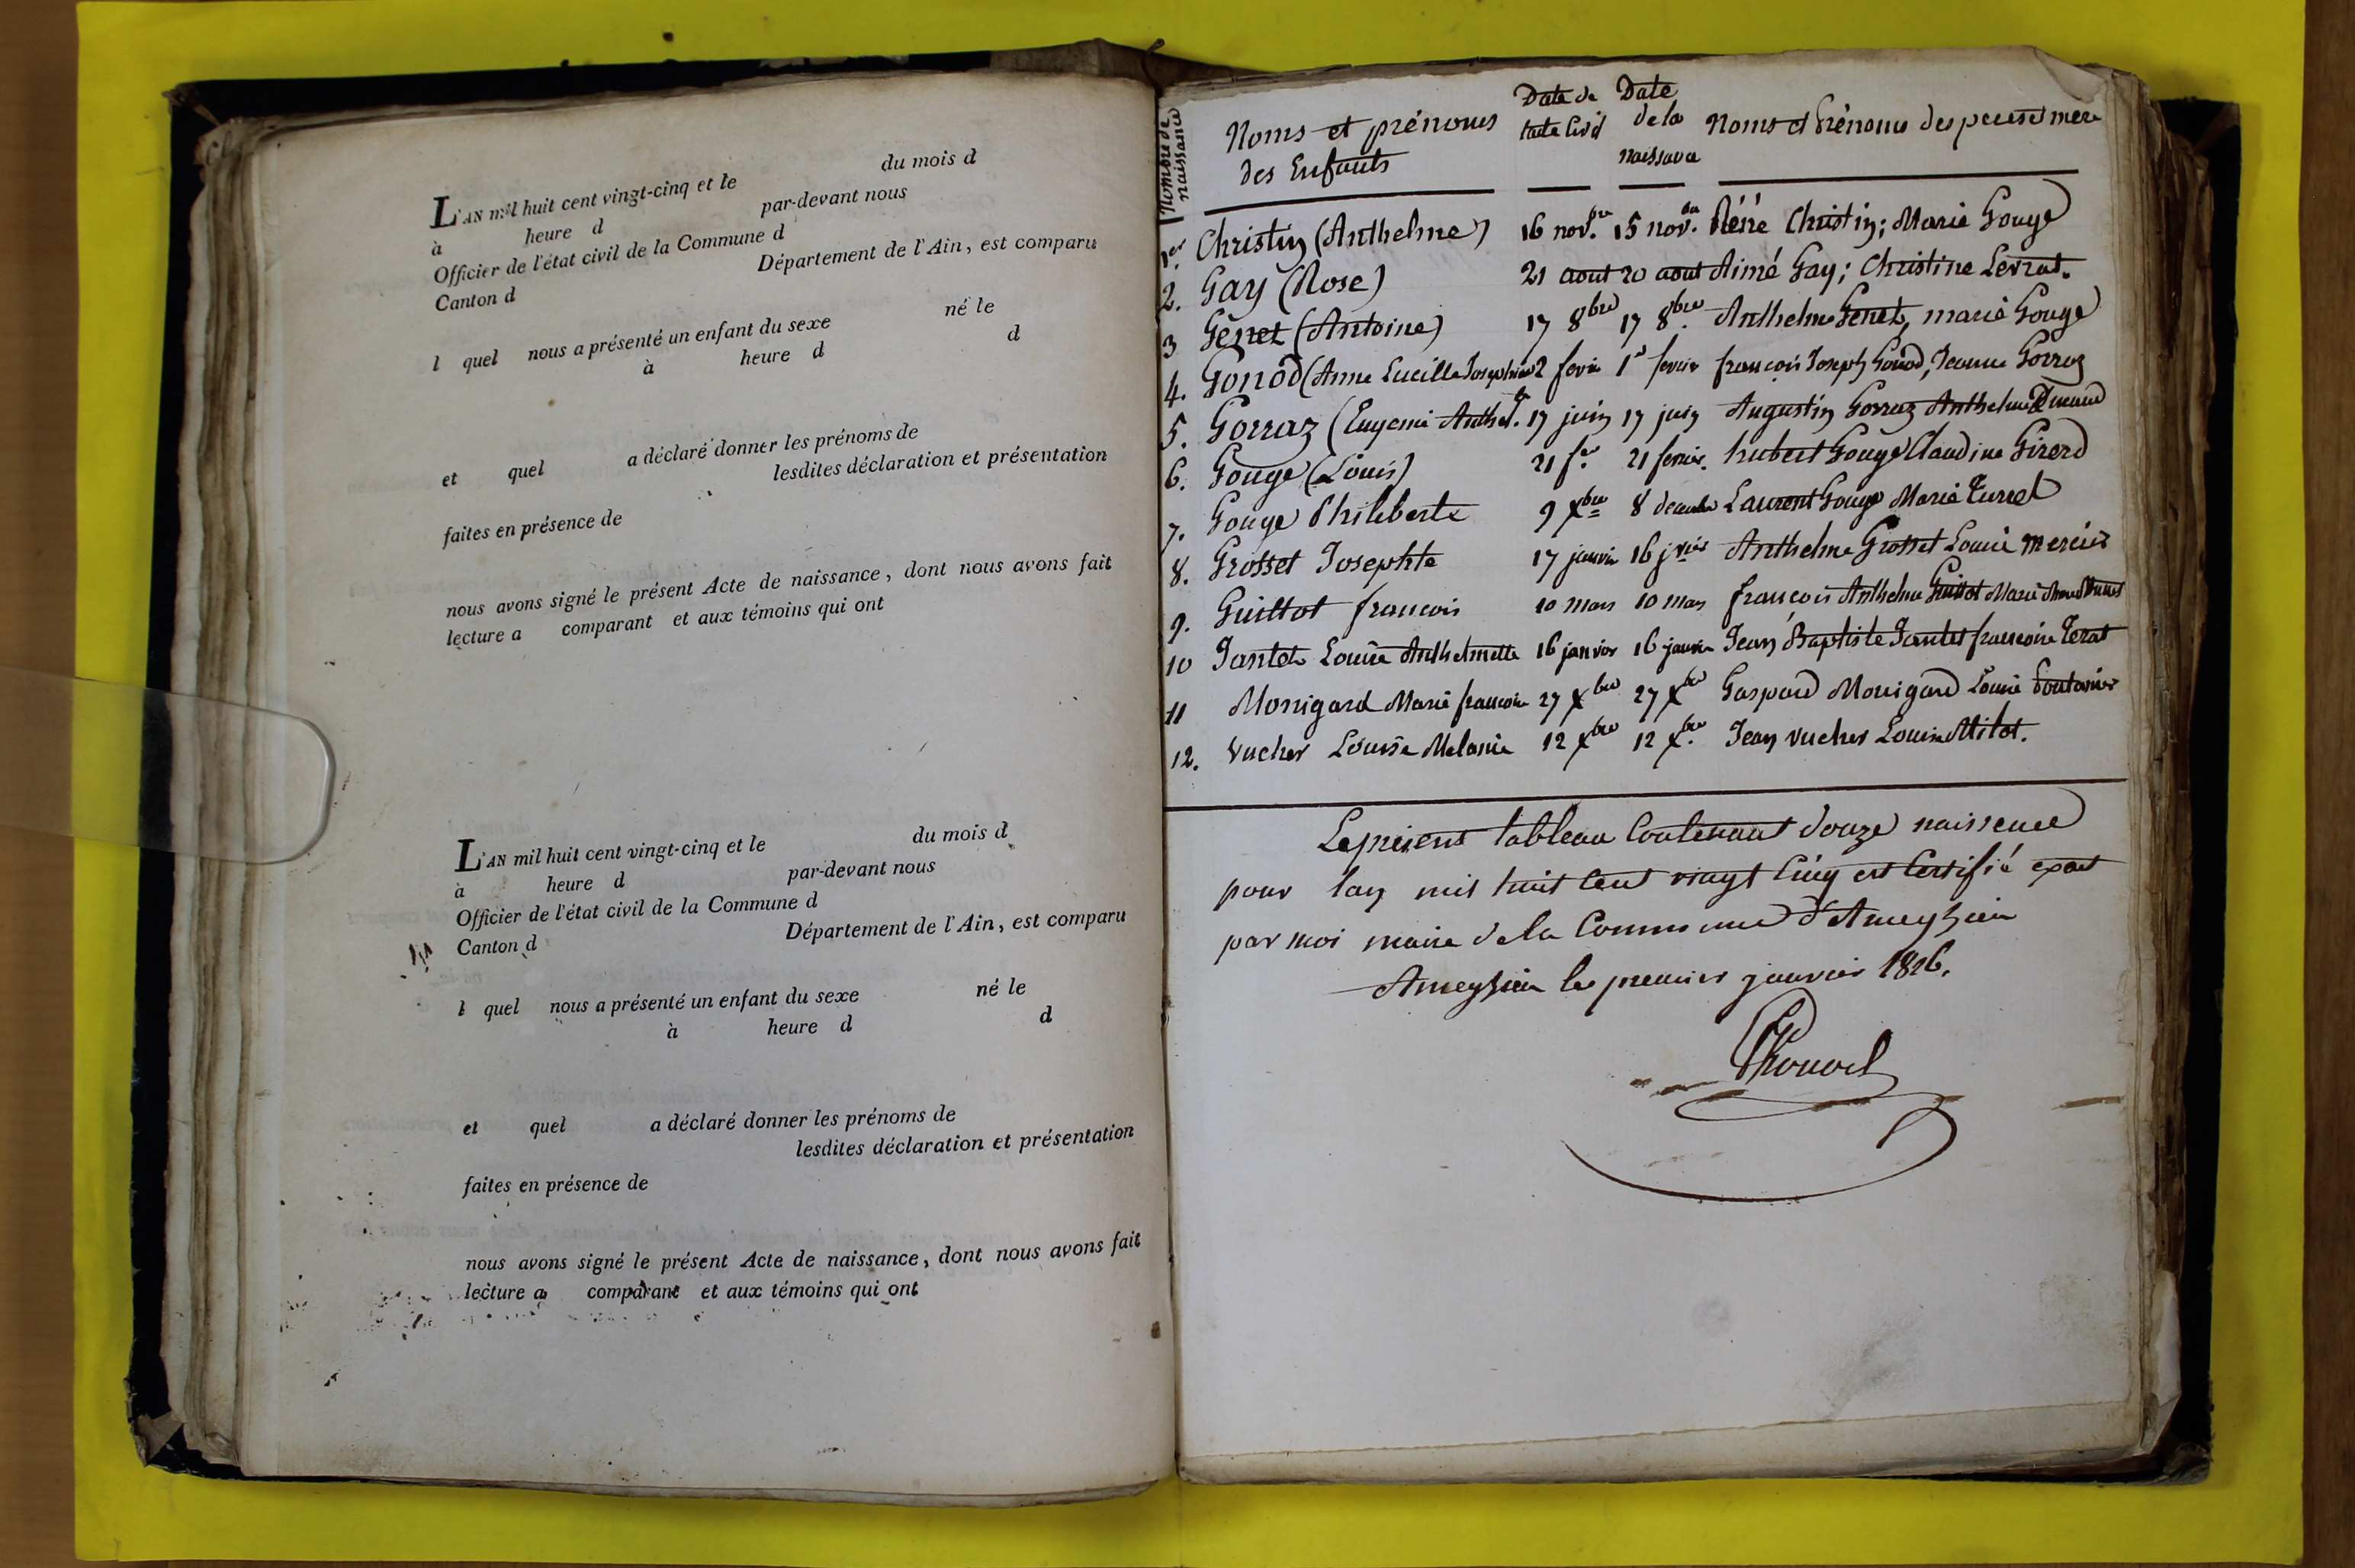 L'AN mil huit cent vingt-cinq et le du mois d
à heure d par-devant nous
Officier de l'état civil de la Commune d
Canton d Département de l'Ain, est comparu
l quel nous a présenté un enfant du sexe né le
à heure d d
et quel a déclaré donner les prénoms de
lesdites déclaration et présentation
faites en présence de
nous avons signé le présent Acte de naissance, dont nous avons fait
lecture a comparant et aux témoins qui ont
L'AN mil huit cent vingt-cinq et le du mois d
à heure d par-devant nous
Officier de l'état civil de la Commune d
Canton d Département de l'Ain, est comparu
l quel nous a présenté un enfant du sexe né le
à heure d d
et quel a déclaré donner les prénoms de
lesdites déclaration et présentation
faites en présence de
nous avons signé le présent Acte de naissance, dont nous avons fait
lecture a comparant et aux témoins qui ont
Nombre de naissance
Noms et prénoms des Enfants
Date de lacte Civil
Date de la naissance
Noms et Prénoms des pere et mere
1er Christin (Anthelme) 16 nov.bre 15 nov.bre Réné Christin; Marie Gouge
2. Gay (Rose) 21 aout 20 aout Aimé Gay; Christine Levrat.
3 Genet (Antoine) 17 8bre 17 8bre Anthelme Genet, marie Gouge
4. Gonod (Anne Lucille Josephine 2 fevrie 1er fevrier françois Joseph Gonod, Jeanne Gorraz
5. Gorraz (Eugenie Anthel. 17 juin 17 juin Augustin Gorraz Anthelme
6. Gouge (Louis) 21 fer 21 fevrier. hubert Gouge Claudine Girerd
7. Gouge Philiberte 9 Xbre 8 decembre Laurent Gouge Marie Turrel
8. Grosset Josephte 17 janvier 16 jvier Anthelme Grosset Louise mercier
9. Guillot francois 10 mars 10 mars françois Anthelme Guillot Marie
10 Jantet Louise Anthelmette 16 janvier 16 janvier Jean Baptiste Jantet francoise
11 Monigard Marie francoise 27 Xbre 27 Xbre Gaspard Monigard Louise
12. Vucher Louise Melanie 12 Xbre 12 Xbre Jean vucher Louise Milot.
Le présent tableau Contenant douze naissence
pour lan mil huit Cent vingt Cinq est Certifié exact
par moi maire de la Commune d'Ameyzieu
Ameyzieu le premier janvier 1826.